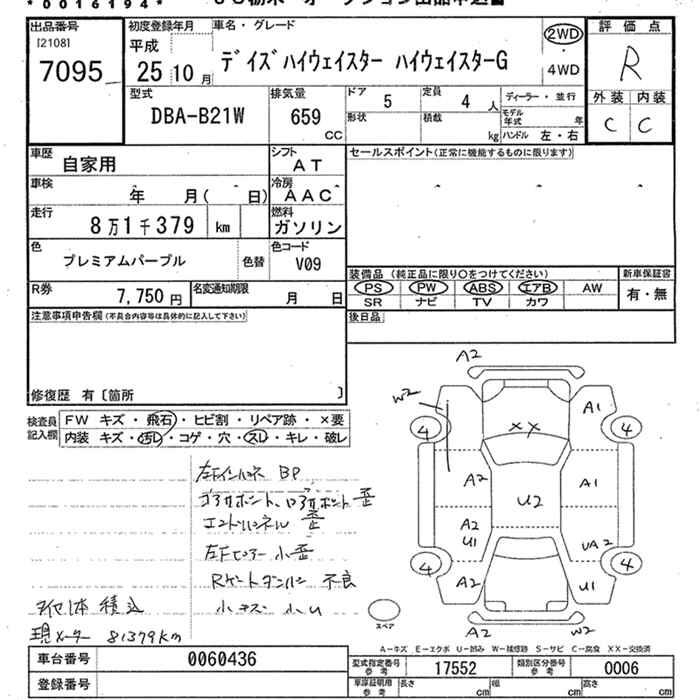 * 0016194 *
出品番号 初度登録年月 車名・グレード 評価点
[2108] 平成 2WD
7095 25 10月 デイズハイウェイスター ハイウェイスターG 4WD R
型式 排気量 ドア 5 定員 4 人 ディーラー・並行 外装 内装
DBA-B21W 659 CC 形状 積載 kg モデル年式 年 C C
ハンドル 左・右
車歴 自家用 シフト AT セールスポイント(正常に機能するものに限ります)
車検 年 月( 日) 冷房 AAC
走行 8万1千379 km 燃料 ガソリン
色 プレミアムパープル 色替 色コード V09
装備品 (純正品に限り〇をつけてください) 新車保証書
R券 7,750 円 名変通知期限 月 日 PS PW ABS エアB AW 有・無
SR ナビ TV カワ
注意事項申告欄(不具合内容等は具体的に記入して下さい) 後日品
修復歴 有〔箇所 〕
検査員記入欄 FW キズ・飛石・ヒビ割・リペア跡・×要
内装 キズ・汚レ・コゲ・穴・スレ・キレ・破レ
A2
W2 A1
4 XX 4
A2 U2 A1
A2 U1 UA2
4 A2 U1 4
A2 W2
スペア
BP
エンドパネル 歪
小歪
不良
小キズ 小U
積込
現メーター 81379km
A-キズ E-エクボ U-凹み W-補修跡 S-サビ C-腐食 XX-交換済
車台番号 0060436 型式指定番号 参考 17552 類別区分番号 参考 0006
登録番号 車庫証明用 参考 長さ cm 幅 cm 高さ cm